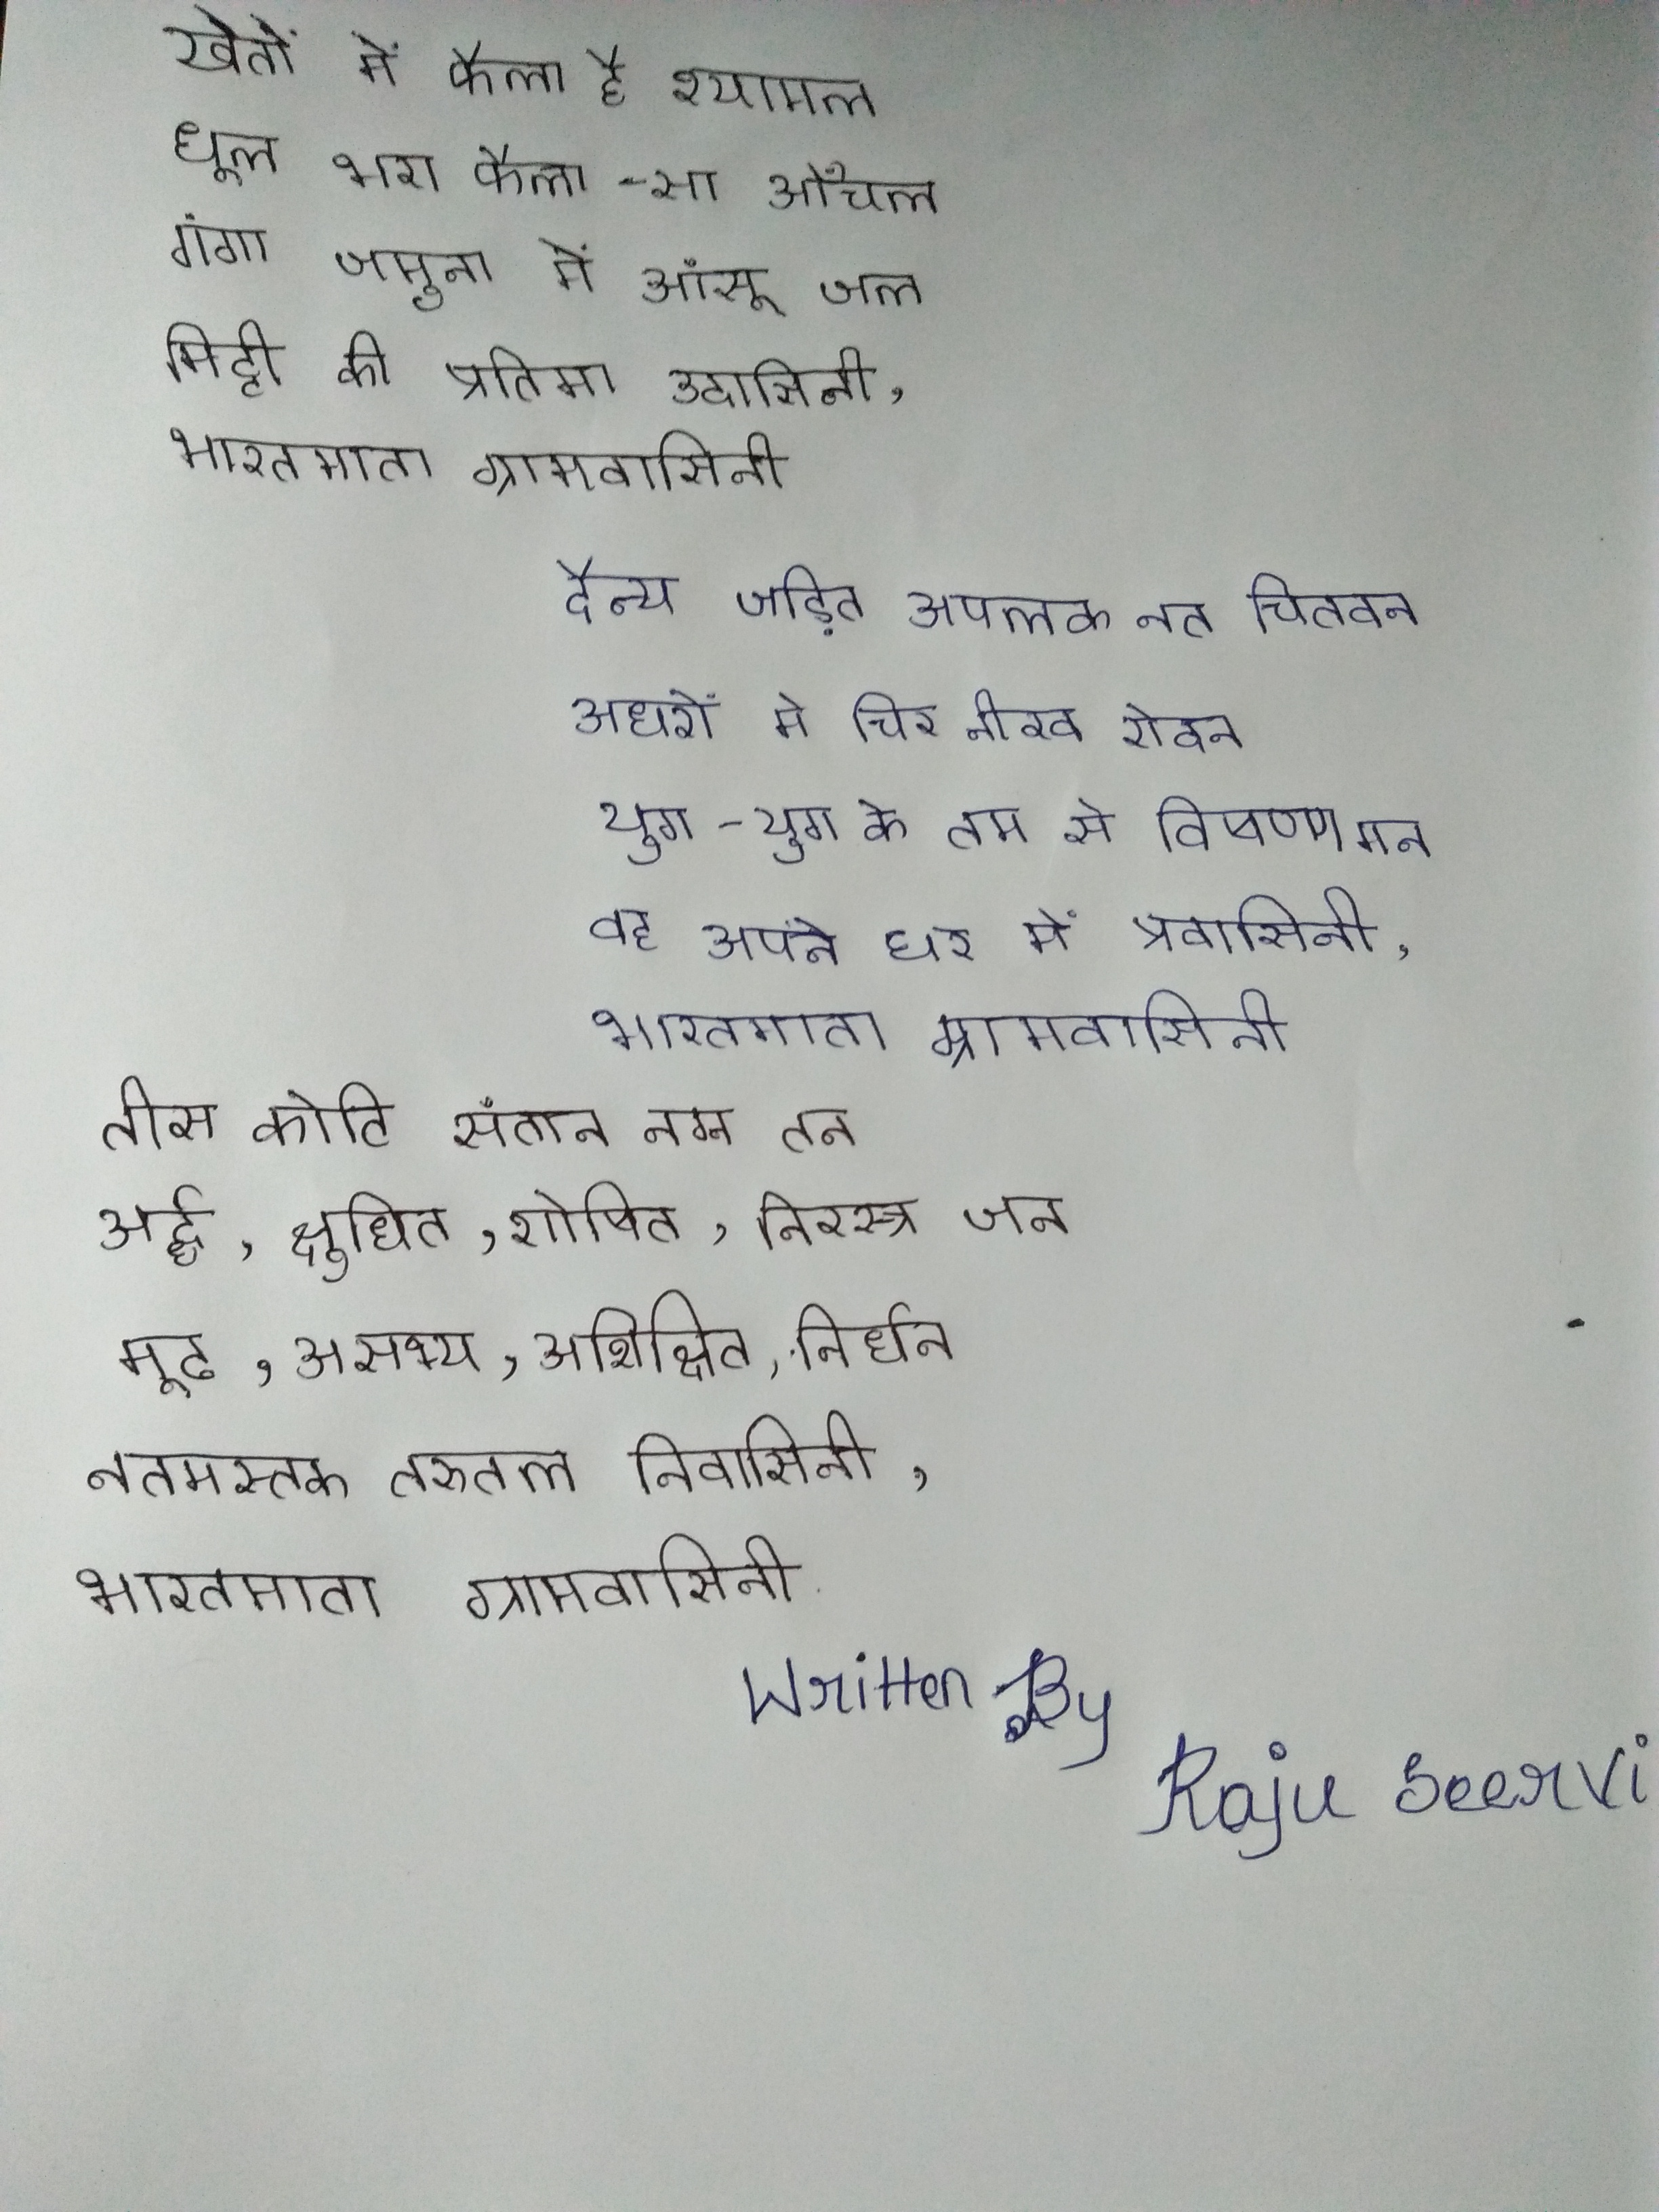 खेतों में फैला है श्यामल
धूल भरा फैला-सा आँचल
गंगा जमुना में आंसू जल
मिट्टी की प्रतिमा उदासिनी,
भारतमाता ग्रामवासिनी
दैन्य जड़ित अपलक नत चितवन
अधरों मे चिर नीरव रोदन
युग-युग के तम से विषण्ण मन
वह अपने घर में प्रवासिनी,
भारतमाता ग्रामवासिनी
तीस कोटि संतान नग्न तन
अर्द्ध, क्षुधित, शोषित, निरस्त्र जन
मूढ, असभ्य, अशिक्षित, निर्धन
नतमस्तक तरुतल निवासिनी,
भारतमाता ग्रामवासिनी.
Written By
Raju Seervi